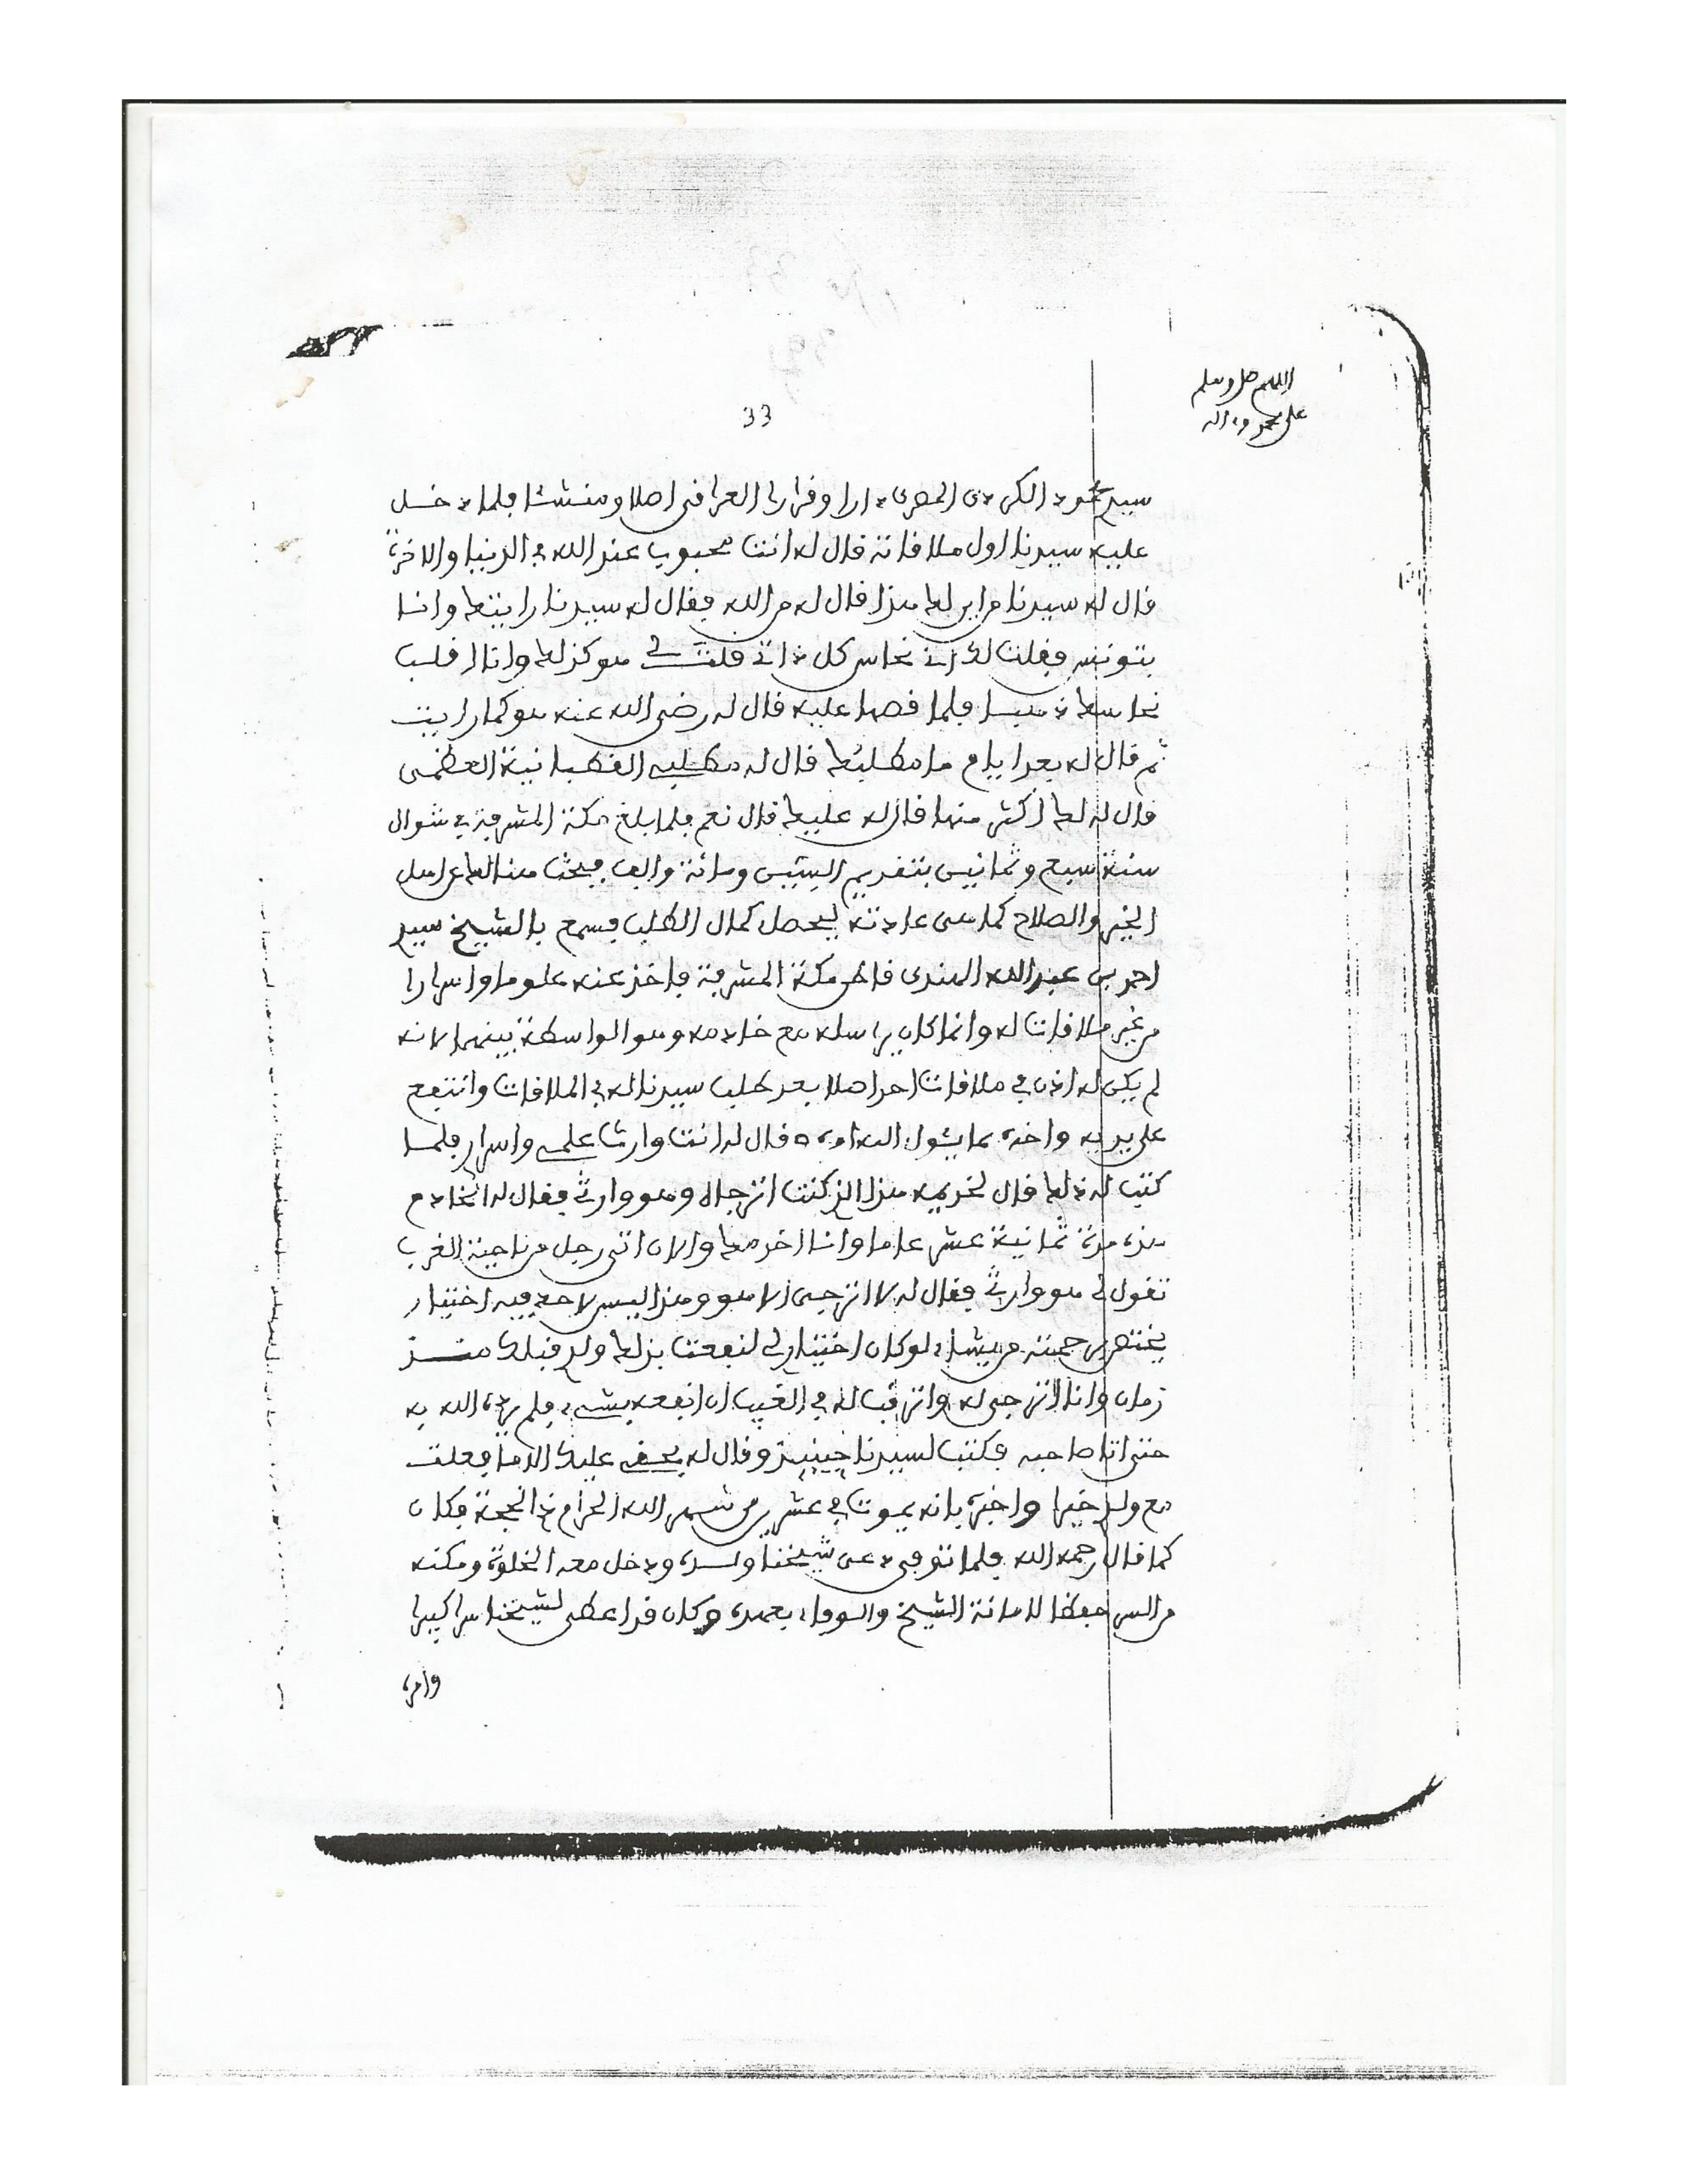 اللهم صل وسلم
على محمد وءاله
33
سيدي محمود الكردي المصري دارا وقرارا العراقي اصلا ومنشئا فلما دخل
عليه سيدنا اول ملاقاته قال له انت محبوب عند الله في الدنيا والاخرة
قال له سيدنا من اين لك هذا قال له من الله فقال له سيدنا رايتك وانا
بتونس فقلت لك اني نحاس كل ذاتي قلت لي هو كذلك وانا اقلب
نحاسك ذهبا فلما قصها عليه قال له رضي الله عنه هو كما رايت
ثم قال له بعد ايام ما مطلبك قال له مطلبي القطبانية العظمى
قال له لك اكثر منها قال له عليك قال نعم فلما بلغ مكة المشرفة في شوال
سنة سبع وثمانين بتقديم السين ومائة والف فبحث هنالك عن اهل
الخير والصلاح كما هي عادته ليحصل كمال الطلب فسمع بالشيخ سيدي
احمد بن عبد الله الهندي قاطن مكة المشرفة فاخذ عنه علوما واسرارا
من غير ملاقات له وانما كان يراسله مع خادمه وهو الواسطة بينهما لانه
لم يكن له اذن في ملاقات احد اصلا بعد طلب سيدنا له في الملاقات وانتفع
على يديه واخبره بما يئول اليه امره قال له انت وارث علمي واسراري فلما
كتب له ذلك قال لخديمه هذا الذي كنت اترجاه وهو وارثي فقال له الخادم
هذه مدة ثمانية عشر عاما وانا اخدمك والان اتى رجل من ناحية الغرب
تقول لي هو وارثي فقال له لا اترجى الا هو وهذا ليس لاحد فيه اختيار
يختص برحمته من يشاء لو كان اختيار لي لنفعت بذلك ولدي قبلك منذ
زمان وانا اترجى له واترقب له في الغيب ان انفعه بشيء فلم يرد الله به
حتى اتا صاحبه فكتب لسيدنا حينئذ وقال له بحقي عليك الا ما فعلت
مع ولدي خيرا واخبره بانه يموت في عشرين من شهر الله الحرام ذي الحجة فكان
كما قال رحمه الله فلما توفي دعى شيخنا ولده ودخل معه الخلوة ومكنه
من السر حفظا لامانة الشيخ والوفاء بعهده وكان قد اعطى لشيخنا سرا كبيرا
وامره